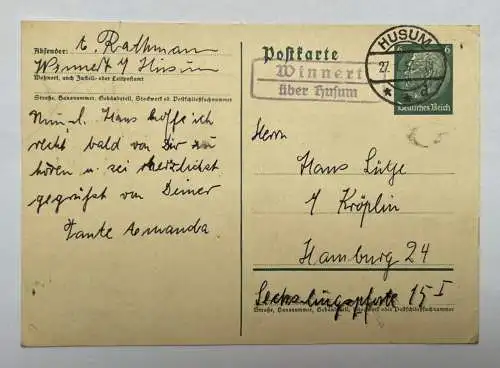 Absender: A. Rathman
Winnert / Husum
Wohnort, auch Zustell- oder Leitpostamt
Straße, Hausnummer, Gebäudeteil, Stockwerk od. Postschließfachnummer
Nun l. Hans hoffe ich
recht bald von Dir zu
hören u. sei herzlichst
gegrüßt von Deiner
Tante Amanda
Postkarte
Winnert
über Husum
HUSUM
27.
d
6
6
Deutsches Reich
Herrn
Hans Lütge
Kröplin
Hamburg 24
Sechslingspforte 15 I
Straße, Hausnummer, Gebäudeteil, Stockwerk oder Postschließfachnummer